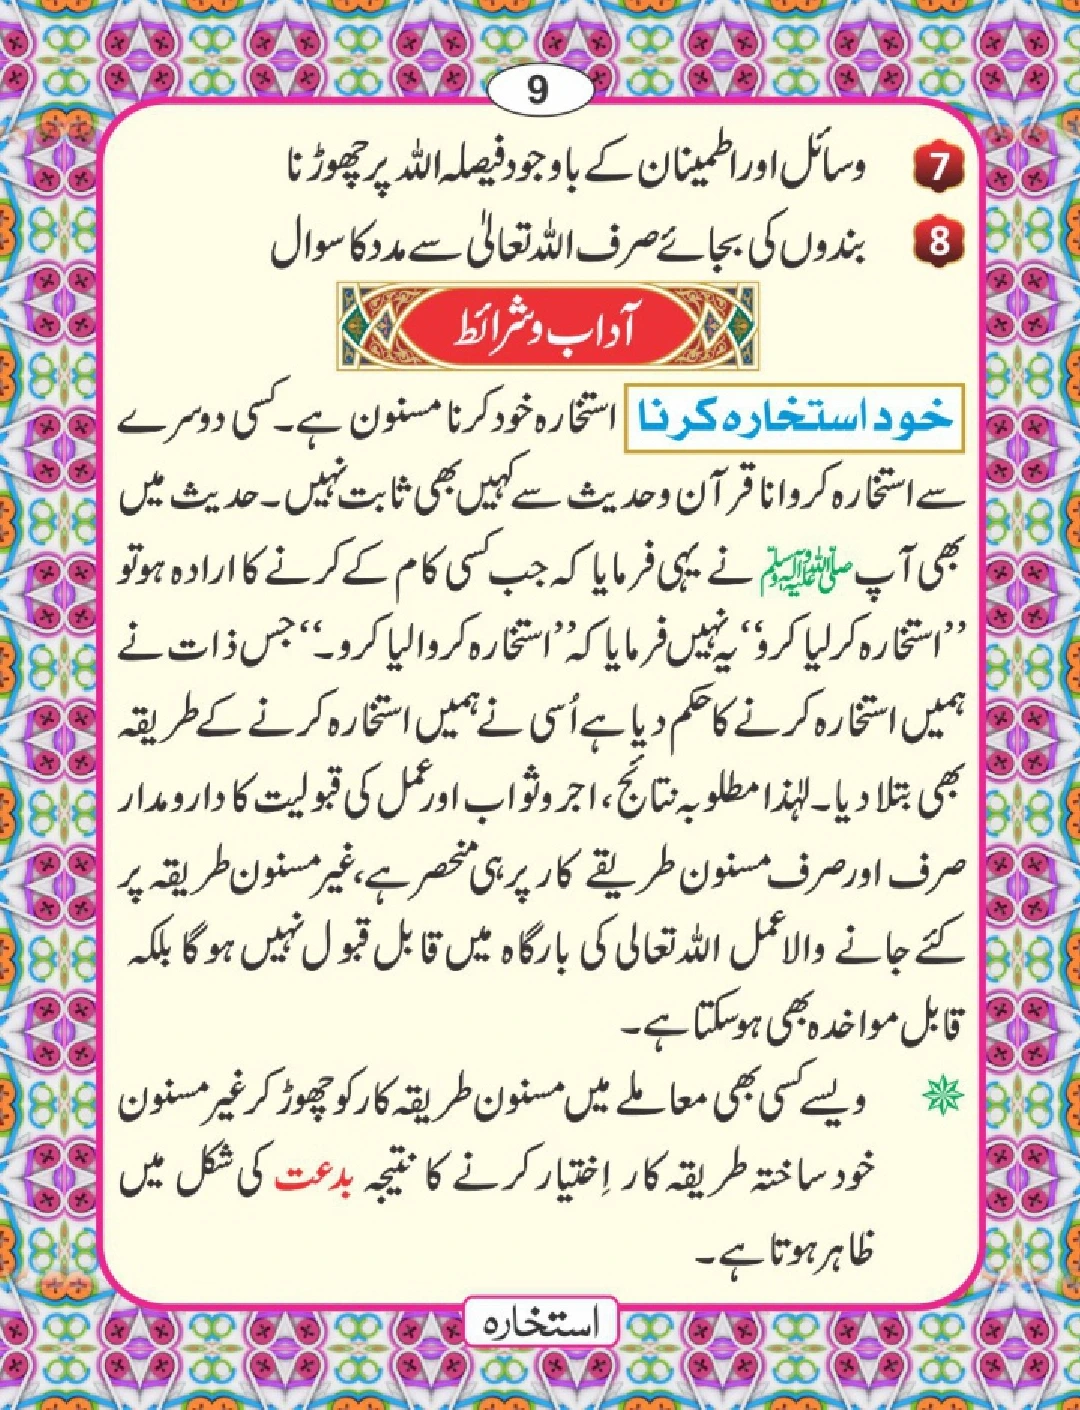 9
7 وسائل اور اطمینان کے باوجود فیصلہ اللہ پر چھوڑنا
8 بندوں کی بجائے صرف اللہ تعالیٰ سے مدد کا سوال
آداب و شرائط
خود استخارہ کرنا استخارہ خود کرنا مسنون ہے۔ کسی دوسرے
سے استخارہ کروانا قرآن و حدیث سے کہیں بھی ثابت نہیں۔ حدیث میں
بھی آپ ﷺ نے یہی فرمایا کہ جب کسی کام کے کرنے کا ارادہ ہو تو
’’استخارہ کر لیا کرو‘‘ یہ نہیں فرمایا کہ ’’استخارہ کروا لیا کرو۔‘‘ جس ذات نے
ہمیں استخارہ کرنے کا حکم دیا ہے اُسی نے ہمیں استخارہ کرنے کے طریقہ
بھی بتلا دیا۔ لہٰذا مطلوبہ نتائج، اجر و ثواب اور عمل کی قبولیت کا دارومدار
صرف اور صرف مسنون طریقے کار پر ہی منحصر ہے، غیر مسنون طریقہ پر
کئے جانے والا عمل اللہ تعالی کی بارگاہ میں قابل قبول نہیں ہو گا بلکہ
قابل مواخدہ بھی ہو سکتا ہے۔
ویسے کسی بھی معاملے میں مسنون طریقہ کار کو چھوڑ کر غیر مسنون
خود ساختہ طریقہ کار اِختیار کرنے کا نتیجہ بدعت کی شکل میں
ظاہر ہوتا ہے۔
استخارہ